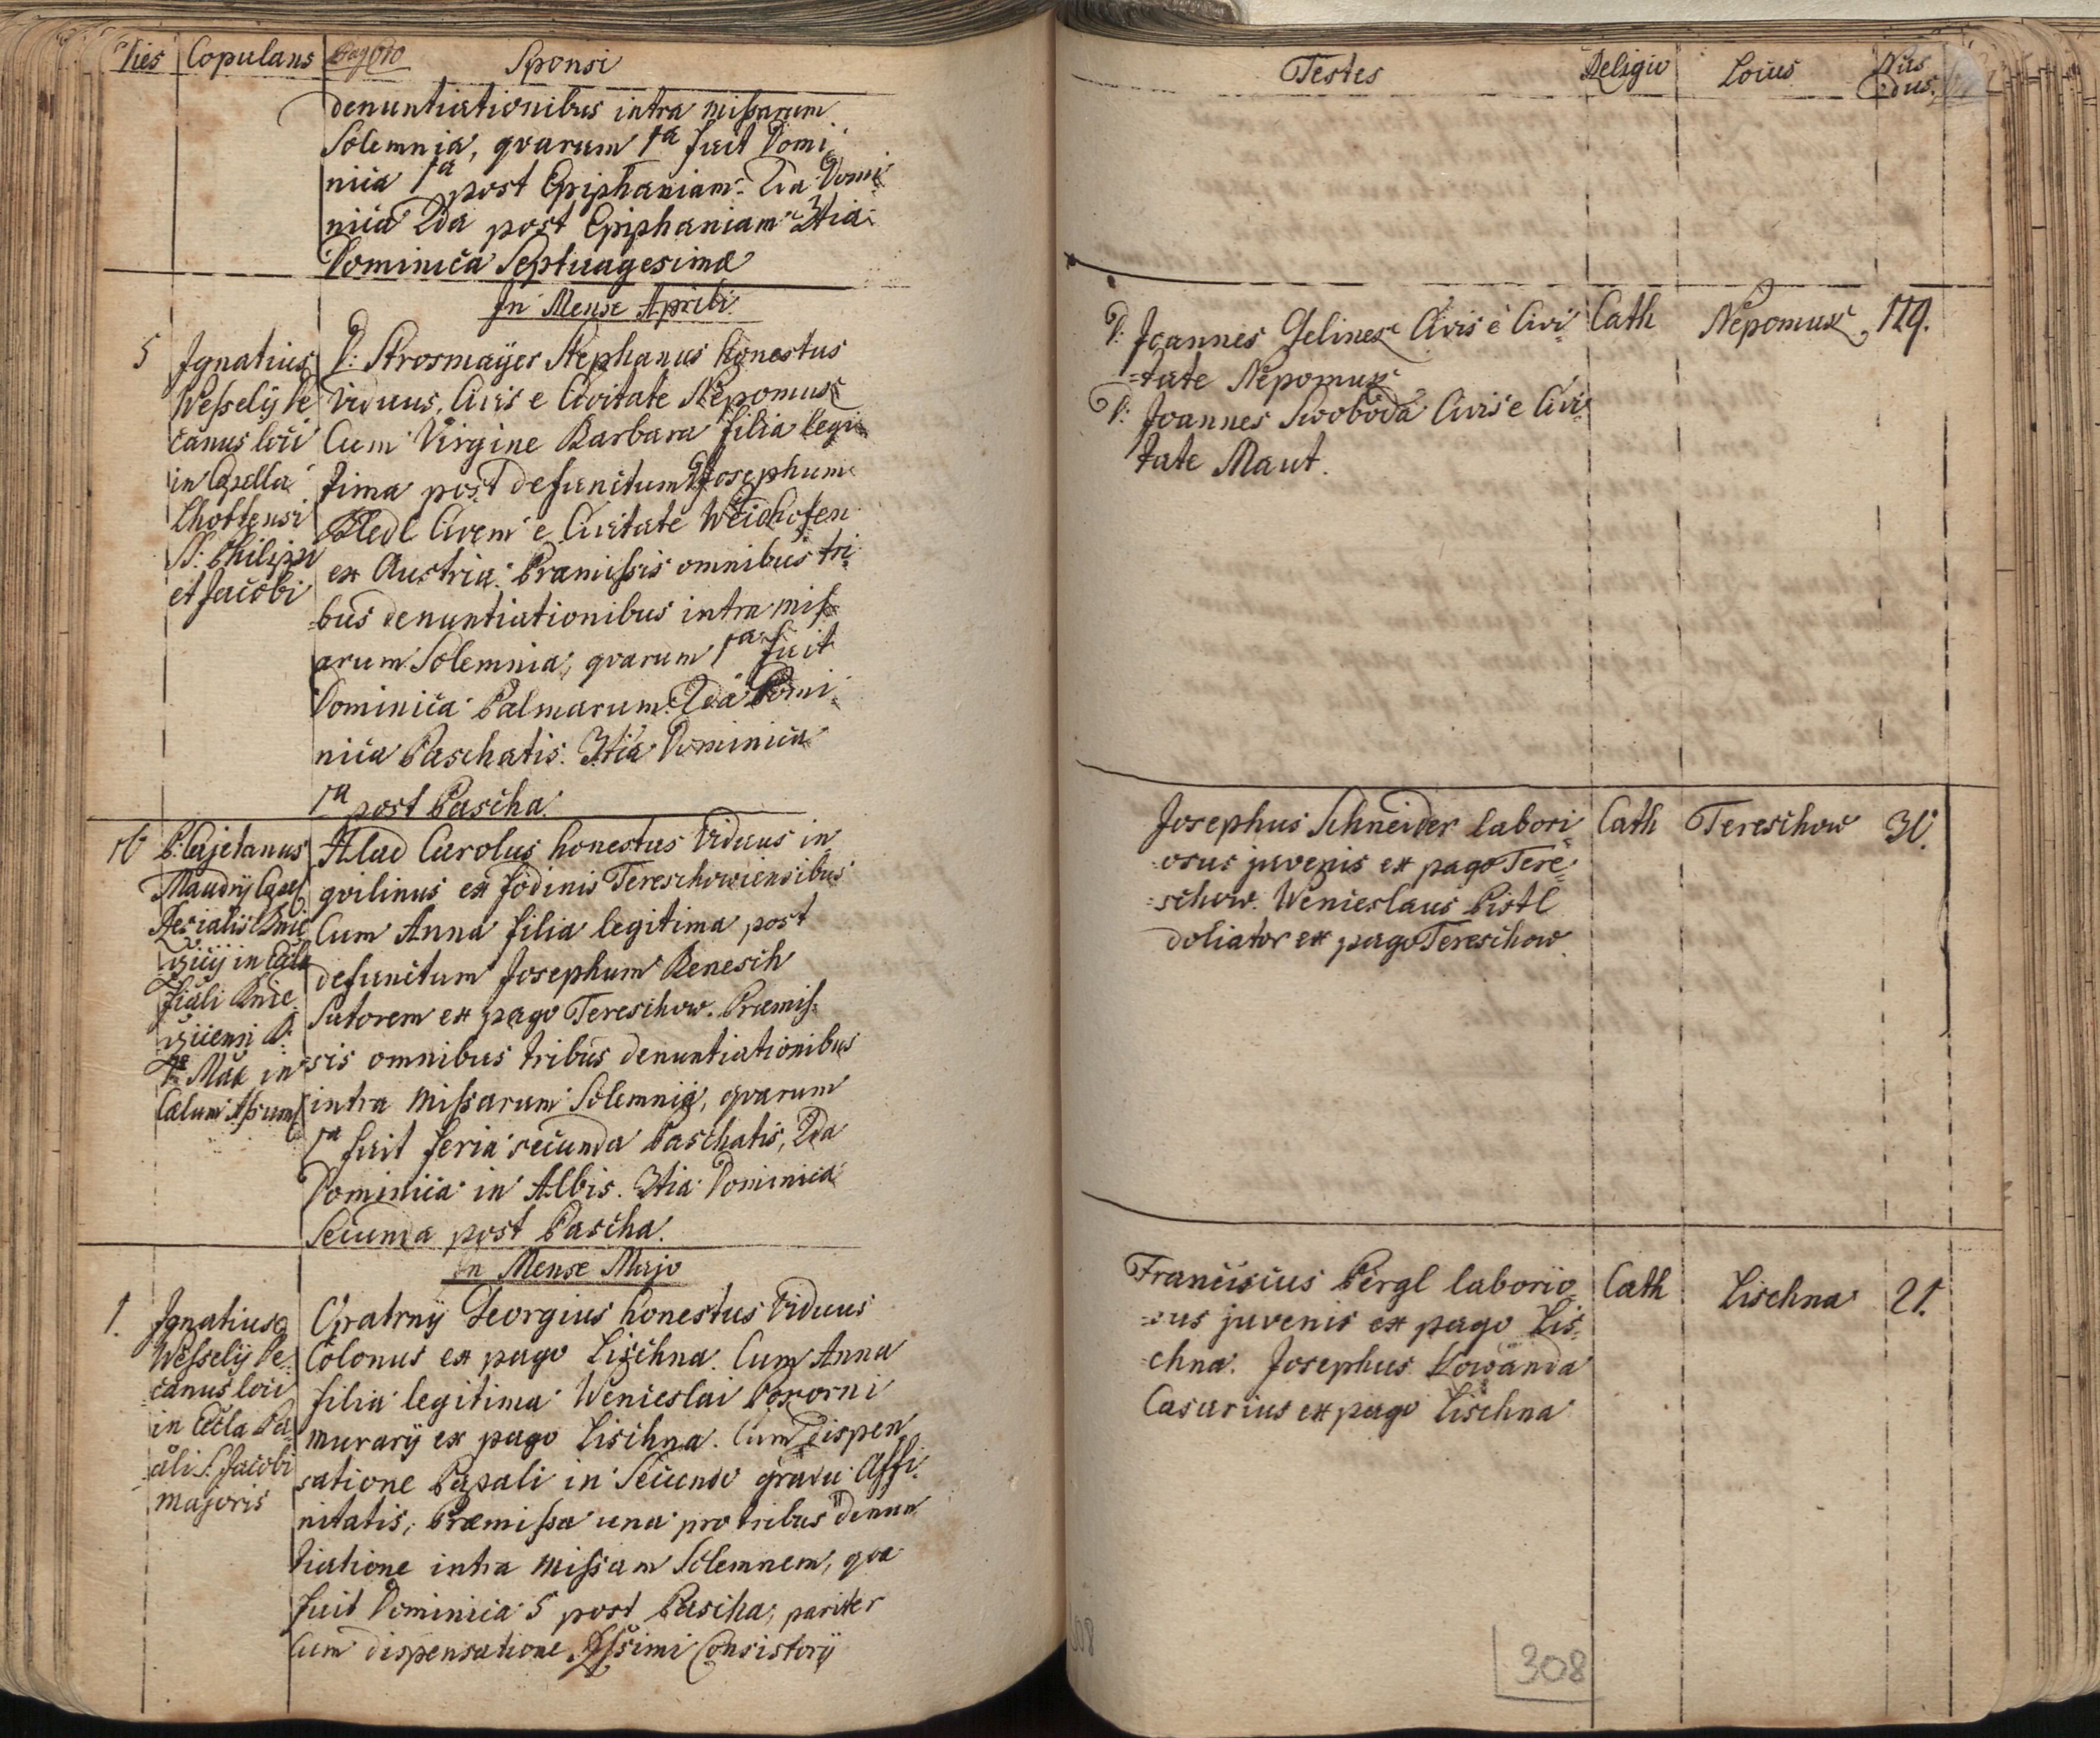 Dies Copulans Pag Sponsi
denuntiationibus intra missarum
Solemnia, qvarum 1a fuit Domi
nica 1a post Epiphaniam. 2da Domi
nica 2da post Epiphaniam 3tia
Dominica Septuagesimæ
In Mense Aprili
5
Ignatius
Wesselÿ De
canus loci
in Capella
Lhottensi
S: Philippi
et Jacobi
D: Strosmaÿer Stephanus honestus
Viduus, Civis e Civitate Nepomuk
Cum Virgine Barbara filia legi
tima post defunctum D Josephum
Hedl Civem e Civitate Weidhofen
ex Austria. Præmissis omnibus tri
bus denuntiationibus intra miss
arum Solemnia, qvarum 1a fuit
Dominica Palmarum. 2da Domi
nica Paschatis. 3tia Dominica
1a post Pascha.
16
P: Cajetanus
Maudrÿ Capel
in
Cælum Assum
Hlad Carolus honestus Viduus in
qvilinus ex fodinis Tereschowiensibus
Cum Anna filia legitima post
defunctum Josephum Benesch
Sutorem ex pago Tereschow. Præmis
sis omnibus tribus denuntiationibus
intra missarum Solemnia, qvarum
1a fuit feria secunda Paschatis, 2da
Dominica in Albis. 3tia Dominica
Secunda post Pascha.
In Mense Majo
1.
Ignatius
Wesselÿ De
canus loci
in Eccla Pa
ali S. Jacobi
majoris
Opatrnÿ Georgius honestus Viduus
Colonus ex pago Lischna. Cum Anna
filia legitima Wenceslai Pokorni
murarÿ ex pago Lischna. Cum Dispen
satione Papali in Secundo gradu Affi
nitatis, Præmissa una pro tribus denun
tiatione intra missam Solemnem, qvæ
fuit Dominica 5 post Pascha, pariter
Cum dispensatione Consistorÿ
Testes Religio Locus Nrus dus.
D: Joannes Jelinek Civis e Civi
tate Nepomuk
D: Joannes Swoboda Civis e Civi
tate Maut.
Cath Nepomuk 129.
Josephus Schneider labori
osus juvenis ex pago Tere
schow. Wenceslaus Pistl
doliator ex pago Tereschow.
Cath Tereschow 30.
Franciscus Pergl laborio
sus juvenis ex pago Lis
chna. Josephus Kowanda
Casarius ex pago Lischna
Cath Lischna 21.
308